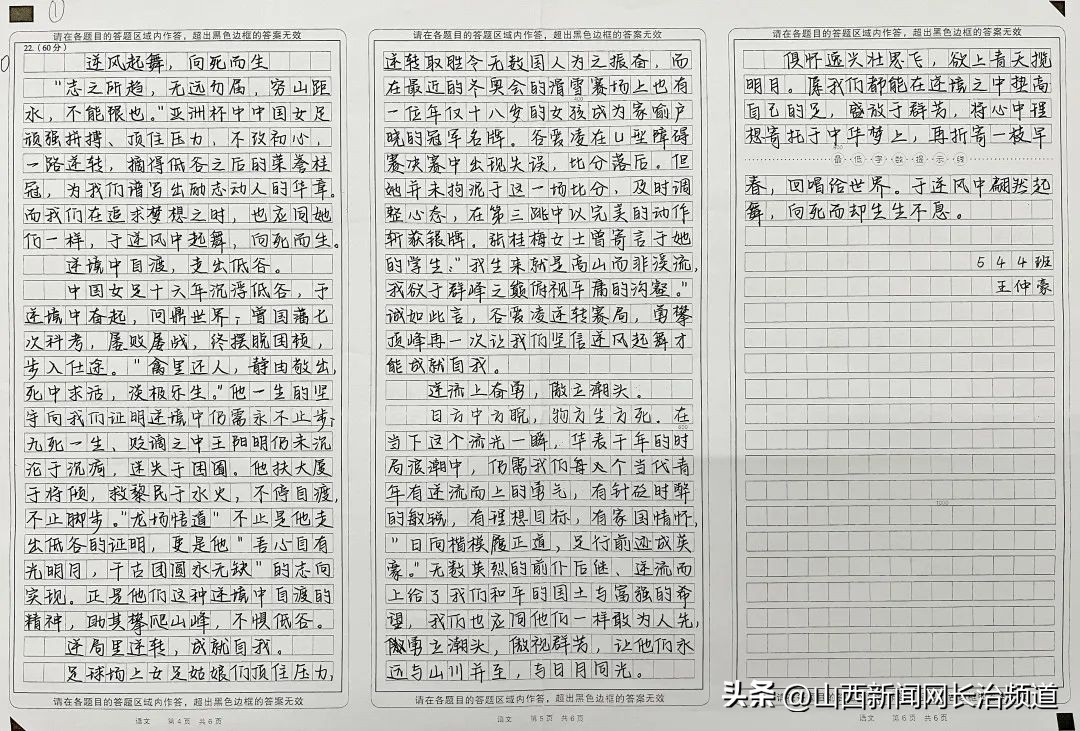 ①
请在各题目的答题区域内作答，超出黑色边框的答案无效
22.(60分)
逆风起舞，向死而生
“志之所趋，无远勿届，穷山距
水，不能限也。”亚洲杯中中国女足
顽强拼搏、顶住压力，不改初心，
一路逆转，摘得低谷之后的荣誉桂
冠，为我们谱写出励志动人的华章。
而我们在追求梦想之时，也应同她
们一样，于逆风中起舞，向死而生。
逆境中自渡，走出低谷。
中国女足十六年沉浮低谷，于
逆境中奋起，问鼎世界；曾国藩七
次科考，屡败屡战，终摆脱困顿，
步入仕途。“禽里还人，静由敬出，
死中求活，淡极乐生。”他一生的坚
守向我们证明逆境中仍需永不止步；
九死一生、贬谪之中王阳明仍未沉
沦于沉疴，迷失于困囿。他扶大厦
于将倾，救黎民于水火，不停自渡，
不止脚步。“龙场悟道”不止是他走
出低谷的证明，更是他“吾心自有
光明月，千古团圆永无缺”的志向
实现。正是他们这种逆境中自渡的
精神，助其攀爬山峰，不惧低谷。
逆局里逆转，成就自我。
足球场上女足姑娘们顶住压力，
请在各题目的答题区域内作答，超出黑色边框的答案无效
语文 第4页 共6页
请在各题目的答题区域内作答，超出黑色边框的答案无效
逆转取胜令无数国人为之振奋，而
在最近的冬奥会的滑雪赛场上也有
400
一位年仅十八岁的女孩成为家喻户
晓的冠军名牌。谷爱凌在U型障碍
赛决赛中出现失误，比分落后。但
她并未拘泥于这一场比分，及时调
整心态，在第三跳中以完美的动作
斩获银牌。张桂梅女士曾寄言于她
的学生：“我生来就是高山而非溪流，
我欲于群峰之巅俯视平庸的沟壑。”
诚如此言，谷爱凌逆转赛局，勇攀
顶峰再一次让我们坚信逆风起舞才
能成就自我。
逆流上奋勇，傲立潮头。
日方中方睨，物方生方死。在
600
当下这个流光一瞬，华表千年的时
局浪潮中，仍需我们每一个当代青
年有逆流而上的勇气，有针砭时弊
的敏锐，有理想目标，有家国情怀，
“日向楷模履正道，足行前迹成英
豪。”无数英烈的前仆后继、逆流而
上给了我们和平的国土与富强的希
望，我们也应同他们一样敢为人先，
勇立潮头，傲视群芳，让他们永
远与山川并至，与日月同光。
请在各题目的答题区域内作答，超出黑色边框的答案无效
语文 第5页 共6页
请在各题目的答题区域内作答，超出黑色边框的答案无效
俱怀逸兴壮思飞，欲上青天揽
明月。愿我们都能在逆境之中垫高
自己的足，盛放于群芳，将心中理
想寄托于中华梦上，再折寄一枝早
800
最低字数提示线
春，回唱给世界。于逆风中翩然起
舞，向死而却生生不息。
544班
王仲豪
1000
请在各题目的答题区域内作答，超出黑色边框的答案无效
语文 第6页 共6页
头条 @山西新闻网长治频道